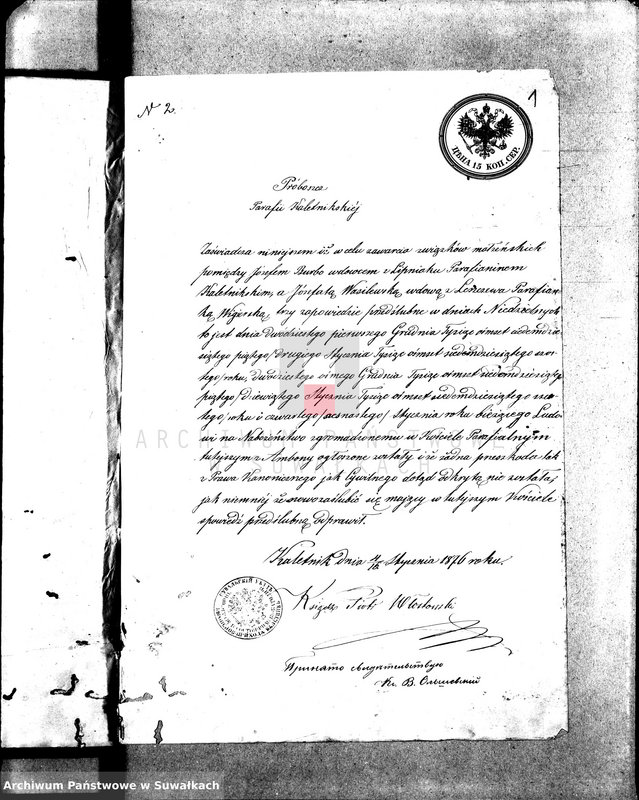 N 2.
1
ЦѢНА 15 КОП. СЕР.
Próbozcz
Parafii Kaletnikskiéj
Zaświadcza niniejszem iż w celu zawarcia związków małżeńskich
pomiędzy Józefem Burbo wdowcem z Lipniaka Parafianinem
Kaletnikskim, a Józefatą Wasilewską wdową z Parafian-
ką trzy zapowiedzie przedślubne w dniach Niedzielnych
to jest dnia dwudziestego pierwszego Grudnia Tysiąc ośmset siedemdzie-
siątego piątego/drugiego Stycznia Tysiąc ośmset siedemdziesiątego szós-
tego/roku, dwudziestego ósmego Grudnia Tysiąc ośmset siedemdziesiątego
piątego/dziewiątego Stycznia Tysiąc ośmset siedemdziesiątego szós-
tego/roku i czwartego/szesnastego/Stycznia roku bieżącego Ludo-
wi na Nabożeństwo zgromadzonemu w Kościele Parafialnym
tutejszym z Ambony ogłoszone zostały i że żadna przeszkoda tak
z Prawa Kanonicznego jak Cywilnego dotąd odkrytą nie została,
jak niemniej że nowozaślubić się mający w tutejszym Kościele
spowiedź przedślubną odprawił.
Kaletnik dnia 4/16 Stycznia 1876 roku.
Ksiądz Piotr Włostowski
Принято свидетельствую
Кс. В. Ольшевский
ARCHIWUM PAŃSTWOWE
W SUWAŁKACH
Archiwum Państwowe w Suwałkach